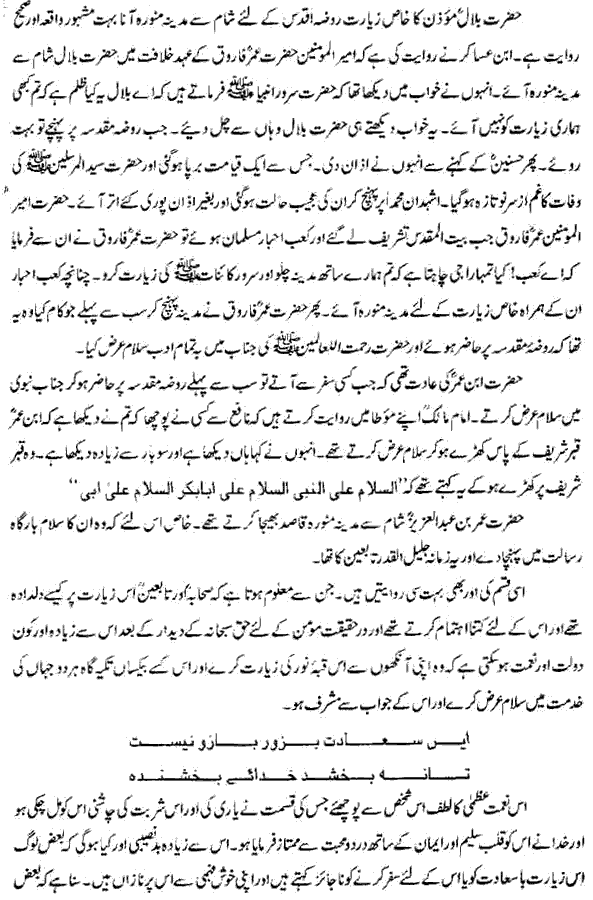 حضرت بلالؓ مؤذن کا خاص زیارت روضہ اقدس کے لئے شام سے مدینہ منورہ آنا بہت مشہور واقعہ اور صحیح
روایت ہے۔ ابن عساکر نے روایت کی ہے کہ امیر المومنین حضرت عمرؓ فاروق کے عہد خلافت میں حضرت بلال شام سے
مدینہ منورہ آئے۔ انہوں نے خواب میں دیکھا تھا کہ حضرت سرور انبیا ﷺ فرماتے ہیں کہ اے بلال یہ کیا ظلم ہے کہ تم کبھی
ہماری زیارت کو نہیں آئے۔ یہ خواب دیکھتے ہی حضرت بلال وہاں سے چل دیئے۔ جب روضہ مقدسہ پر پہنچے تو بہت
روئے۔ پھر حسنینؓ کے کہنے سے انہوں نے اذان دی۔ جس سے ایک قیامت برپا ہوگئی اور حضرت سید المرسلین ﷺ کی
وفات کا غم از سر نو تازہ ہوگیا۔ اشہدان محمداً پر پہنچ کر ان کی عجیب حالت ہوگئی اور بغیر اذان پوری کئے اتر آئے۔ حضرت امیر
المومنین عمرؓ فاروق جب بیت المقدس تشریف لے گئے اور کعب احبار مسلمان ہوئے تو حضرت عمرؓ فاروق نے ان سے فرمایا
کہ اے کعب! کیا تمہارا جی چاہتا ہے کہ تم ہمارے ساتھ مدینہ چلو اور سرور کائنات ﷺ کی زیارت کرو۔ چنانچہ کعب احبار
ان کے ہمراہ خاص زیارت کے لئے مدینہ منورہ آئے۔ پھر حضرت عمرؓ فاروق نے مدینہ پہنچ کر سب سے پہلے جو کام کیا وہ یہ
تھا کہ روضۂ مقدسہ پر حاضر ہوئے اور حضرت رحمت اللعالمین ﷺ کی جناب میں بہ تمام ادب سلام عرض کیا۔
حضرت ابن عمرؓ کی عادت تھی کہ جب کسی سفر سے آتے تو سب سے پہلے روضہ مقدسہ پر حاضر ہوکر جناب نبوی
میں سلام عرض کرتے۔ امام مالکؒ اپنے مؤطا میں روایت کرتے ہیں کہ نافع سے کسی نے پوچھا کہ تم نے دیکھا ہے کہ ابن عمرؓ
قبر شریف کے پاس کھڑے ہوکر سلام عرض کرتے تھے۔ انہوں نے کہا ہاں دیکھا ہے اور سو بار سے زیادہ دیکھا ہے۔ وہ قبر
شریف پر کھڑے ہو کے یہ کہتے تھے کہ ”السلام علی النبی السلام علی ابابکر السلام علیٰ ابی“
حضرت عمر بن عبدالعزیزؒ شام سے مدینہ منورہ قاصد بھیجا کرتے تھے۔ خاص اس لئے کہ وہ ان کا سلام بارگاہ
رسالت میں پہنچادے اور یہ زمانہ جلیل القدر تابعین کا تھا۔
اسی قسم کی اور بھی بہت سی روایتیں ہیں۔ جن سے معلوم ہوتا ہے کہ صحابہؓ اور تابعینؒ اس زیارت پر کیسے دلدادہ
تھے اور اس کے لئے کتنا اہتمام کرتے تھے اور درحقیقت مومن کے لئے حق سبحانہ کے دیدار کے بعد اس سے زیادہ اور کون
دولت اور نعمت ہوسکتی ہے کہ وہ اپنی آنکھوں سے اس قبۂ نور کی زیارت کرے اور اس کے بیکساں تکیہ گاہ ہر دو جہاں کی
خدمت میں سلام عرض کرے اور اس کے جواب سے مشرف ہو۔
ایں سعادت بزور بازو نیست
تسانہ بخشد خدائے بخشندہ
اس نعمت عظمیٰ کا لطف اس شخص سے پوچھئے جس کی قسمت نے یاری کی اور اس شربت کی چاشنی اس کو مل چکی ہو
اور خدا نے اس کو قلب سلیم اور ایمان کے ساتھ درد و محبت سے ممتاز فرمایا ہو۔ اس سے زیادہ بدنصیبی اور کیا ہوگی کہ بعض لوگ
اس زیارت باسعادت کو یا اس کے لئے سفر کرنے کو ناجائز کہتے ہیں اور اپنی خوش فہمی سے اس پر نازاں ہیں۔ سنا ہے کہ بعض